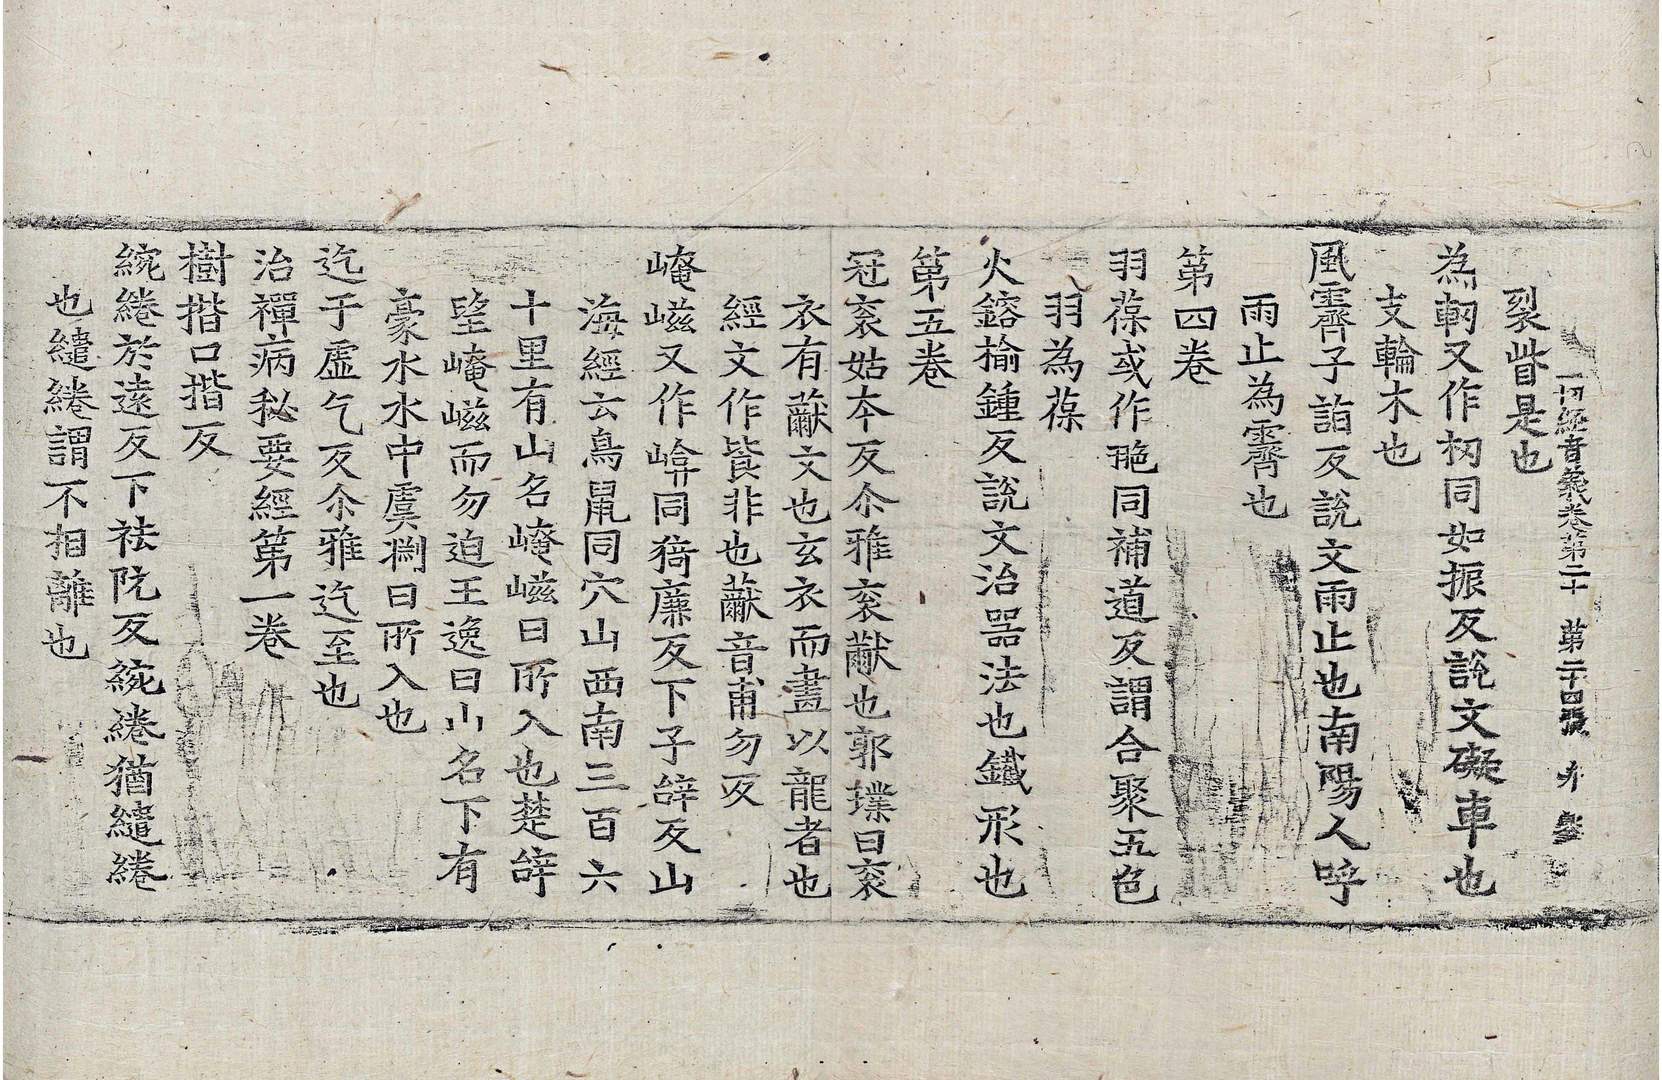 一切經音義卷第二十 第二十四張
裂眥是也
為軔又作朷同如振反說文礙車也
支輪木也
風霽子詣反說文雨止也南陽人呼
雨止為霽也
第四卷
羽葆或作䎂同補道反謂合聚五色
羽為葆
火鎔揄鍾反說文冶器法也鐵形也
第五卷
冠衮姑夲反尒雅衮黻也郭璞曰衮
衣有黻文也玄衣而畫以龍者也
經文作裷非也黻音甫勿反
崦嵫又作崦同猗廉反下子辝反山
海經云鳥鼠同穴山西南三百六
十里有山名崦嵫日所入也楚辝
望崦嵫而勿迫王逸曰山名下有
豪水水中虞渊日所入也
迄于虛乞反尒雅迄至也
治禪病秘要經第一卷
樹揩口揩反
綩綣於遠反下袪阮反綩綣猶繾綣
也繾綣謂不相離也